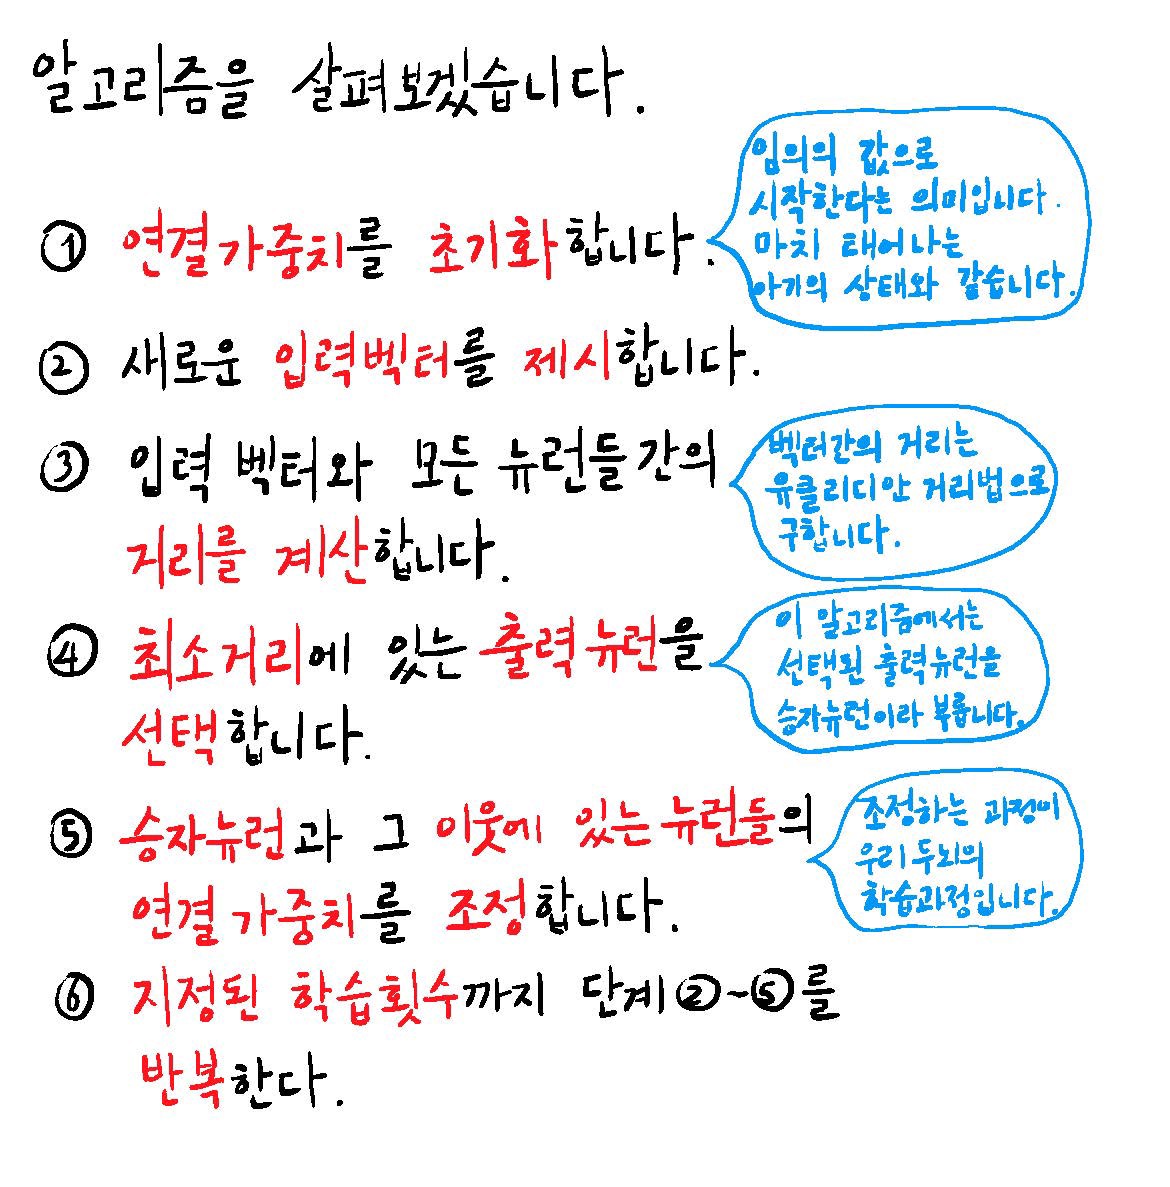 알고리즘을 살펴보겠습니다.
① 연결가중치를 초기화합니다.
임의의 값으로
시작한다는 의미입니다.
마치 태어나는
아기의 상태와 같습니다.
② 새로운 입력벡터를 제시합니다.
③ 입력 벡터와 모든 뉴런들간의
거리를 계산합니다.
벡터간의 거리는
유클리디안 거리법으로
구합니다.
④ 최소거리에 있는 출력뉴런을
선택합니다.
이 알고리즘에서는
선택된 출력뉴런을
승자뉴런이라 부릅니다.
⑤ 승자뉴런과 그 이웃에 있는 뉴런들의
연결가중치를 조정합니다.
조정하는 과정이
우리 두뇌의
학습과정입니다.
⑥ 지정된 학습횟수까지 단계②~⑤를
반복한다.